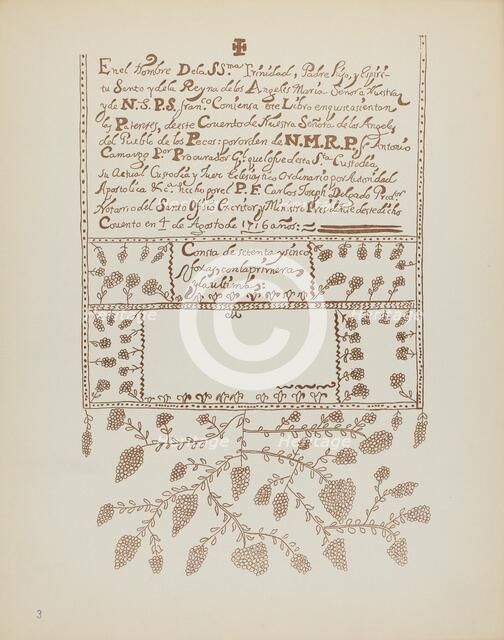 En el Nombre De la SS.ma Trinidad, Padre Hijo, y Espiri-
tu Santo y de la Reyna de los Angeles Maria Señora Nuestra
y de N.S.P.S. fran.co Comiensa este Libro en que se asientan
las Patentes, de este Convento de Nuestra Señora de los Angeles,
del Pueblo de los Pecos: por orden de N.M.R.P. fr. Antonio
Camargo P.or Procurador G.l que lo fue de esta S.ta Custodia,
su Actual Custodio y Juez Eclesiastico Ordinario por Autoridad
Apostolica &c.a Hecho por el P. F. Carlos Joseph Delgado Pred.or
Notario del Santo Ofisio Escritor y Ministro Presidente de este dicho
Convento en 4 de Agosto de 1716 años:
Consta de setenta y sinco
foxas, con la primera
y la ultima:
M
3
Heritage
Images